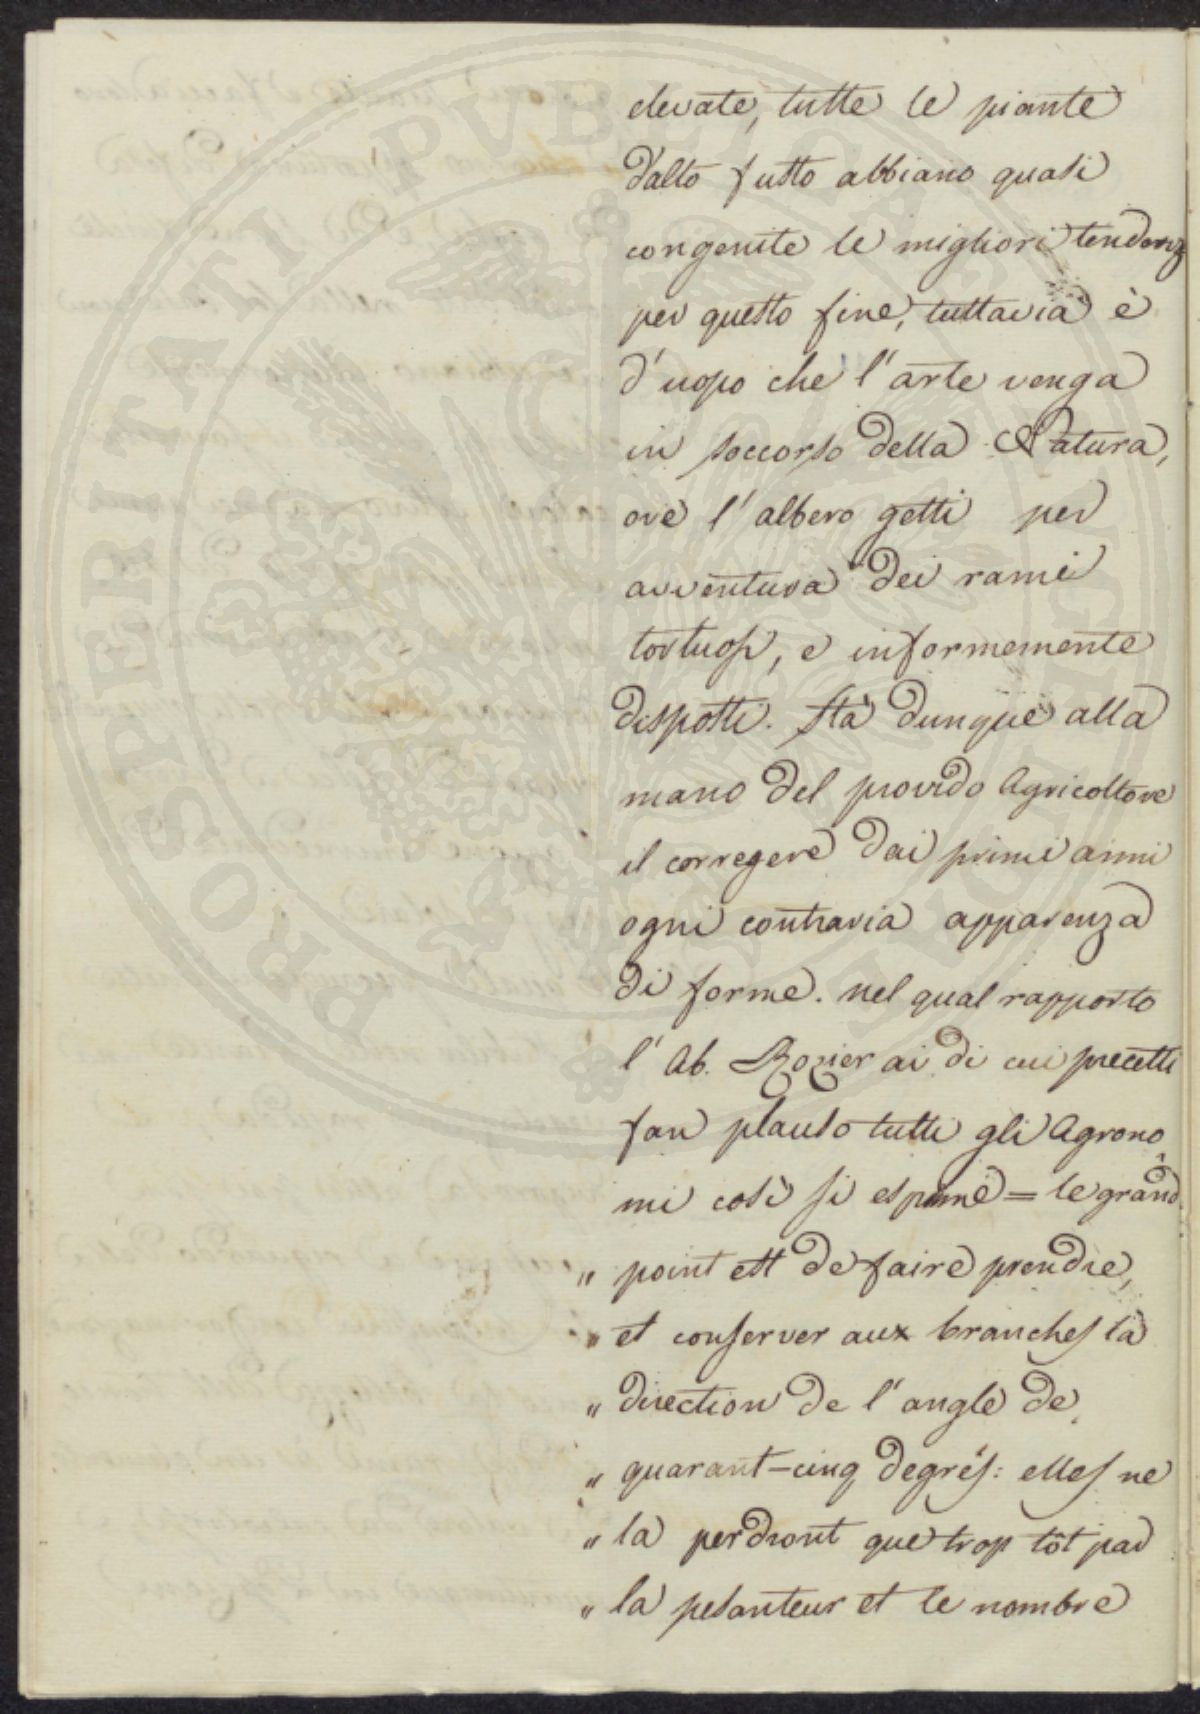 elevate, tutte le piante
d'alto fusto abbiano quasi
congenite le migliori tendenz
per questo fine, tuttavia è
d'uopo che l'arte venga
in soccorso della Natura,
ove l'albero getti per
avventura dei rami
tortuosi, e informemente
disposti. Stà dunque alla
mano del provido Agricoltore
il corregere dai primi anni
ogni contraria apparenza
di forme. nel qual rapporto
l'Ab. Rozier ai di cui precetti
fan plauso tutti gli Agrono
mi così si esprime = le grand
" point est de faire prendre,
" et conserver aux branches la
" direction de l'angle de
" quarant-cinq degrés: elles ne
" la perdront que trop tôt par
" la pesanteur et le nombre
PROSPERITATI PVBLICAE AVGENDAE